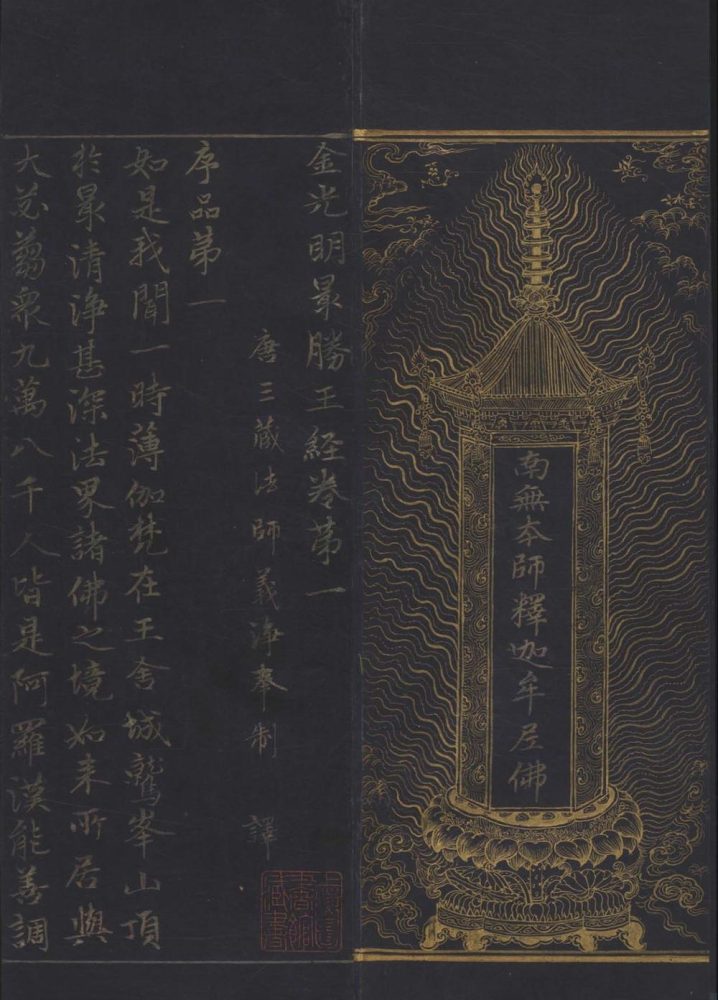 南無本師釋迦牟尼佛
金光明最勝王經卷第一
唐三藏法師義淨奉制 譯
序品第一
如是我聞一時薄伽梵在王舍城鷲峯山頂
於最清淨甚深法界諸佛之境如來所居與
大苾蒭眾九萬八千人皆是阿羅漢能善調